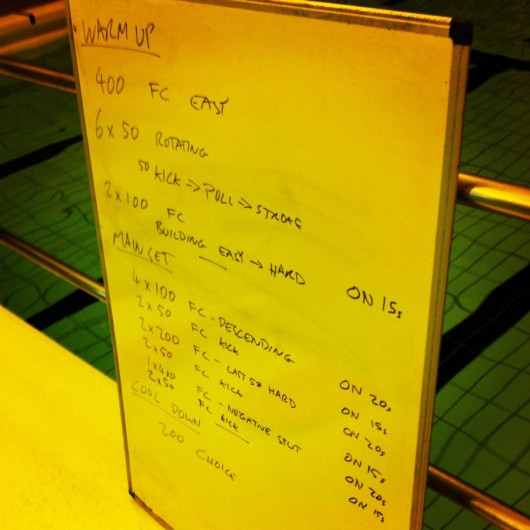 WARM UP
400 FC EASY
6x50 ROTATING
50 KICK → PULL → STROKE
2x100 FC
BUILDING EASY → HARD ON 15s
MAIN SET
4x100 FC - DESCENDING ON 20s
2x50 FC KICK ON 15s
2x200 FC - LAST 50 HARD ON 20s
2x50 FC KICK ON 15s
1x400 FC - NEGATIVE SPLIT ON 20s
2x50 FC KICK ON 15s
COOL DOWN
200 CHOICE